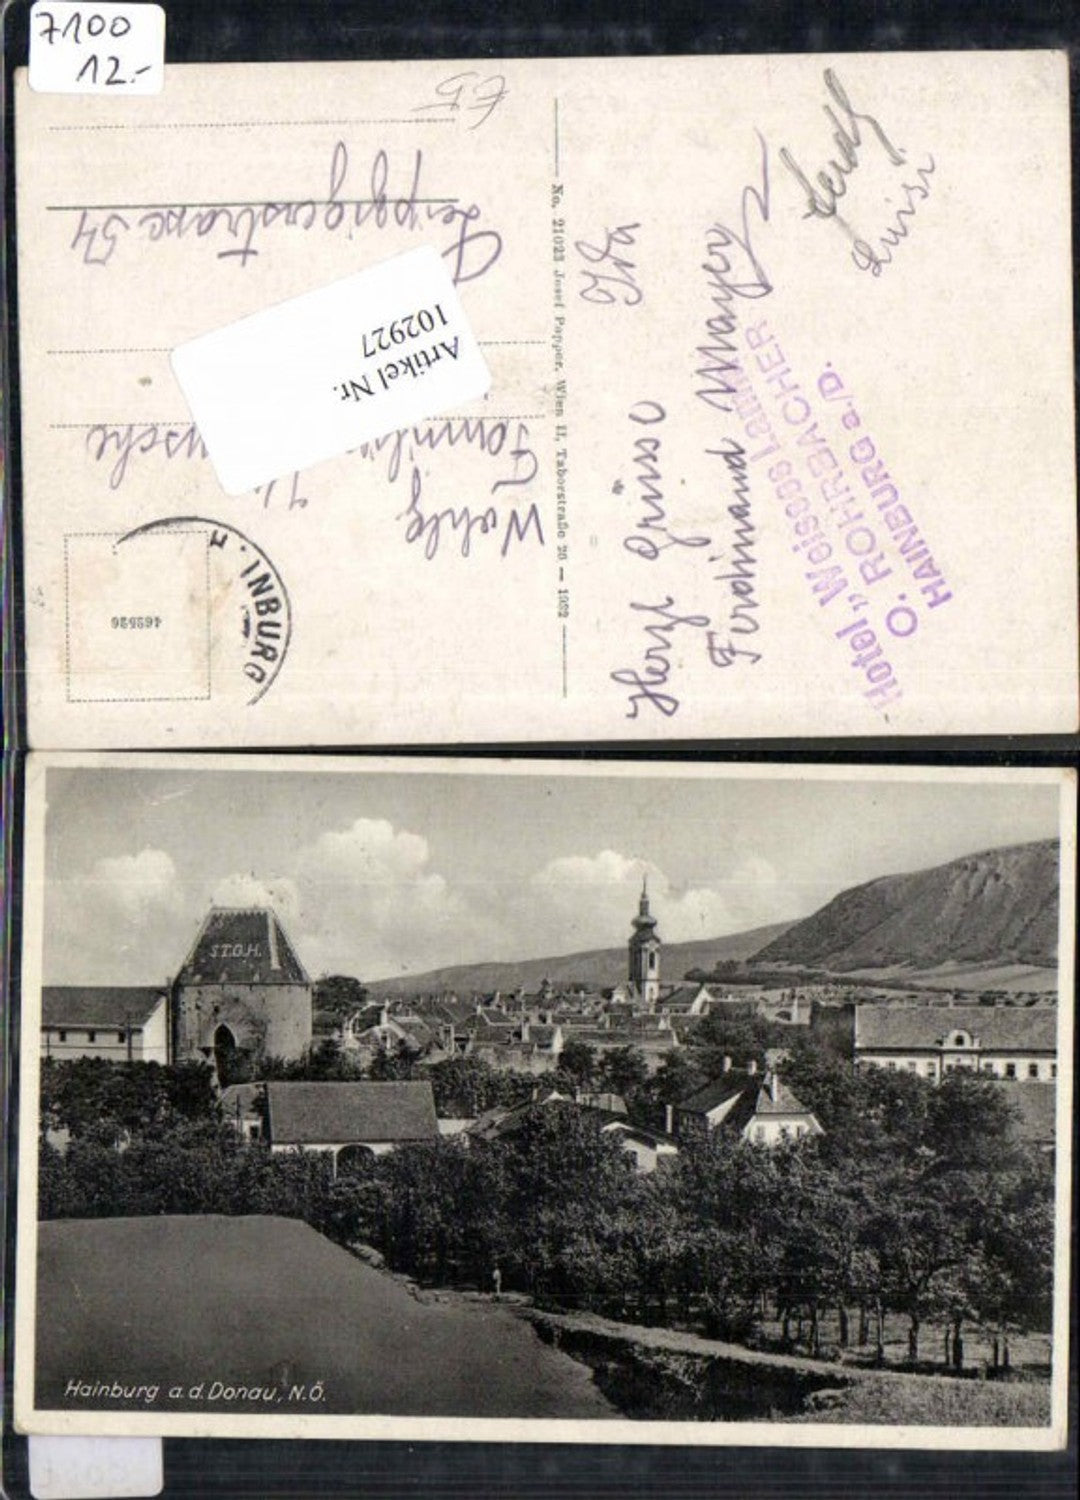 7100
12.-
Herzl Grüsse
Ida
Ferdinand Mayer
Luisi
Hotel „Weisses Lamm
O. ROHRBACHER
HAINBURG a./D.
No. 21023 Josef Popper, Wien II, Taborstraße 20 — 1932
462526
INBURG
Familie
Artikel Nr.
102927
Leipzigerstrasse 54
S.T.D.H.
Hainburg a.d. Donau, N.Ö.